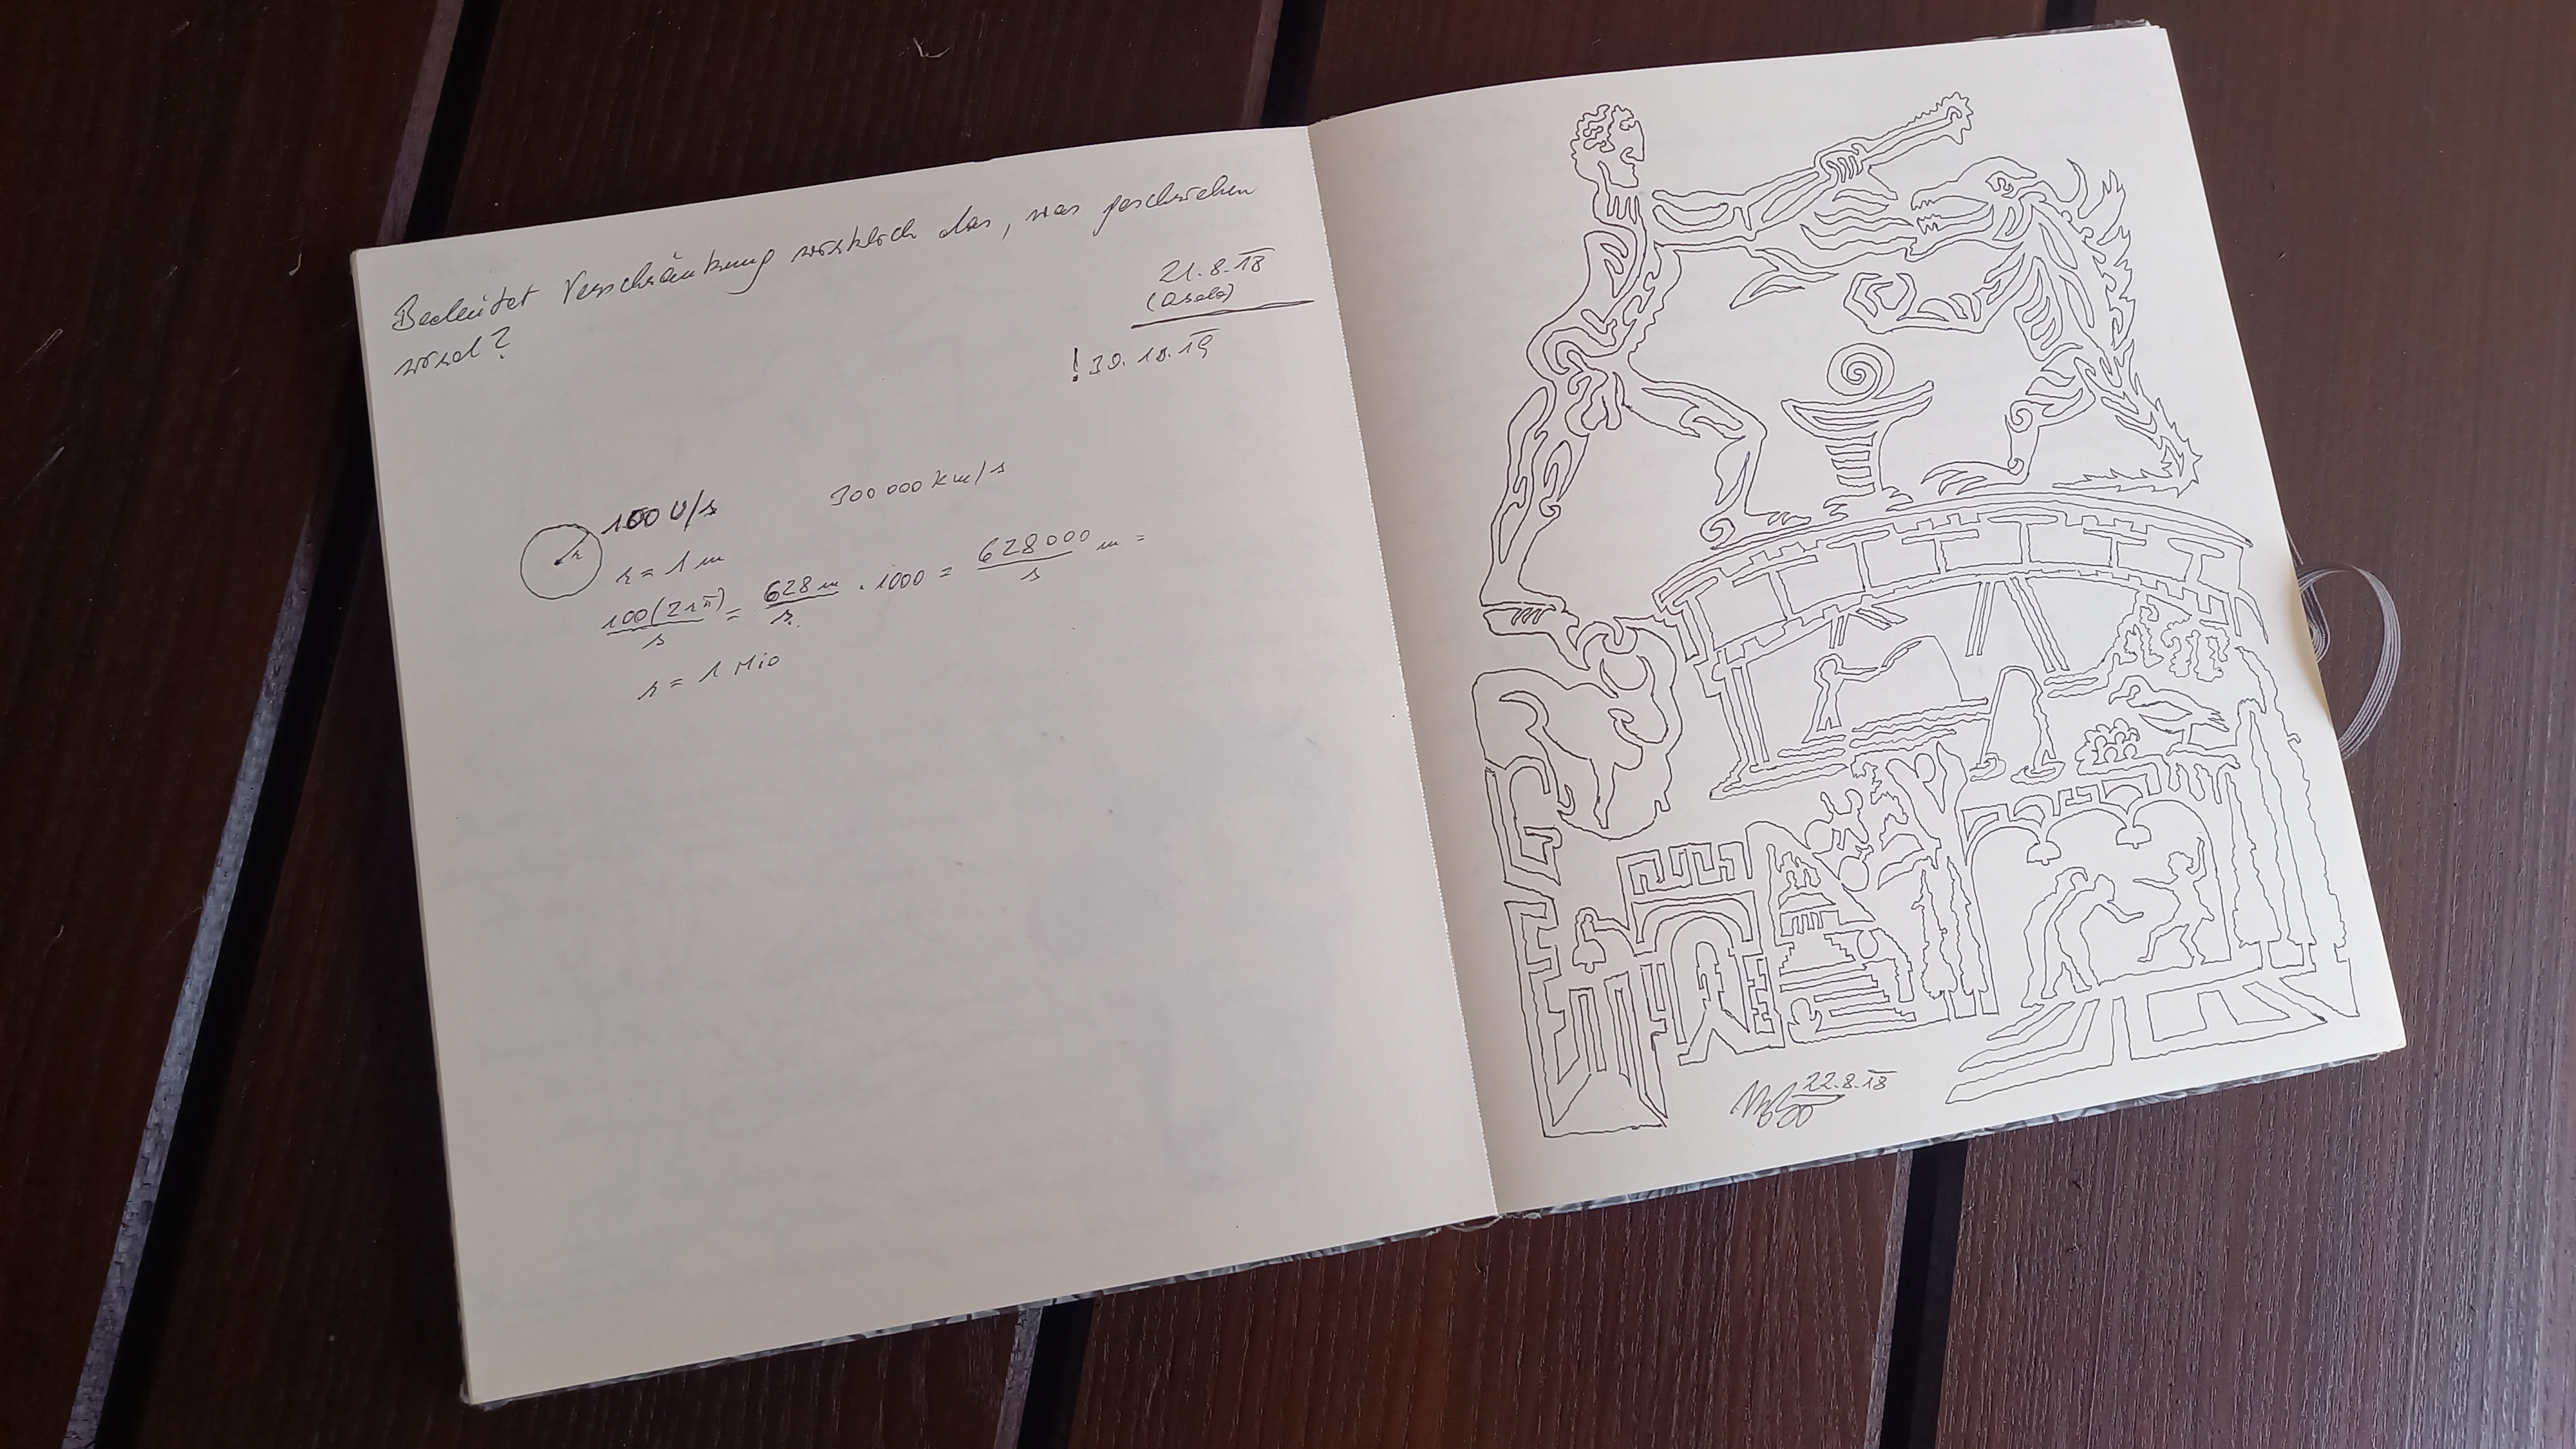 Bedeutet Verschränkung wirklich das, was geschrieben
wird?
21.8.18
(Asolo)
! 30.10.19
100 U/s
300 000 km/s
r
r = 1 m
100(2rπ)/s = 628 m/s · 1000 = 628000 m/s =
r = 1 Mio
22.8.18